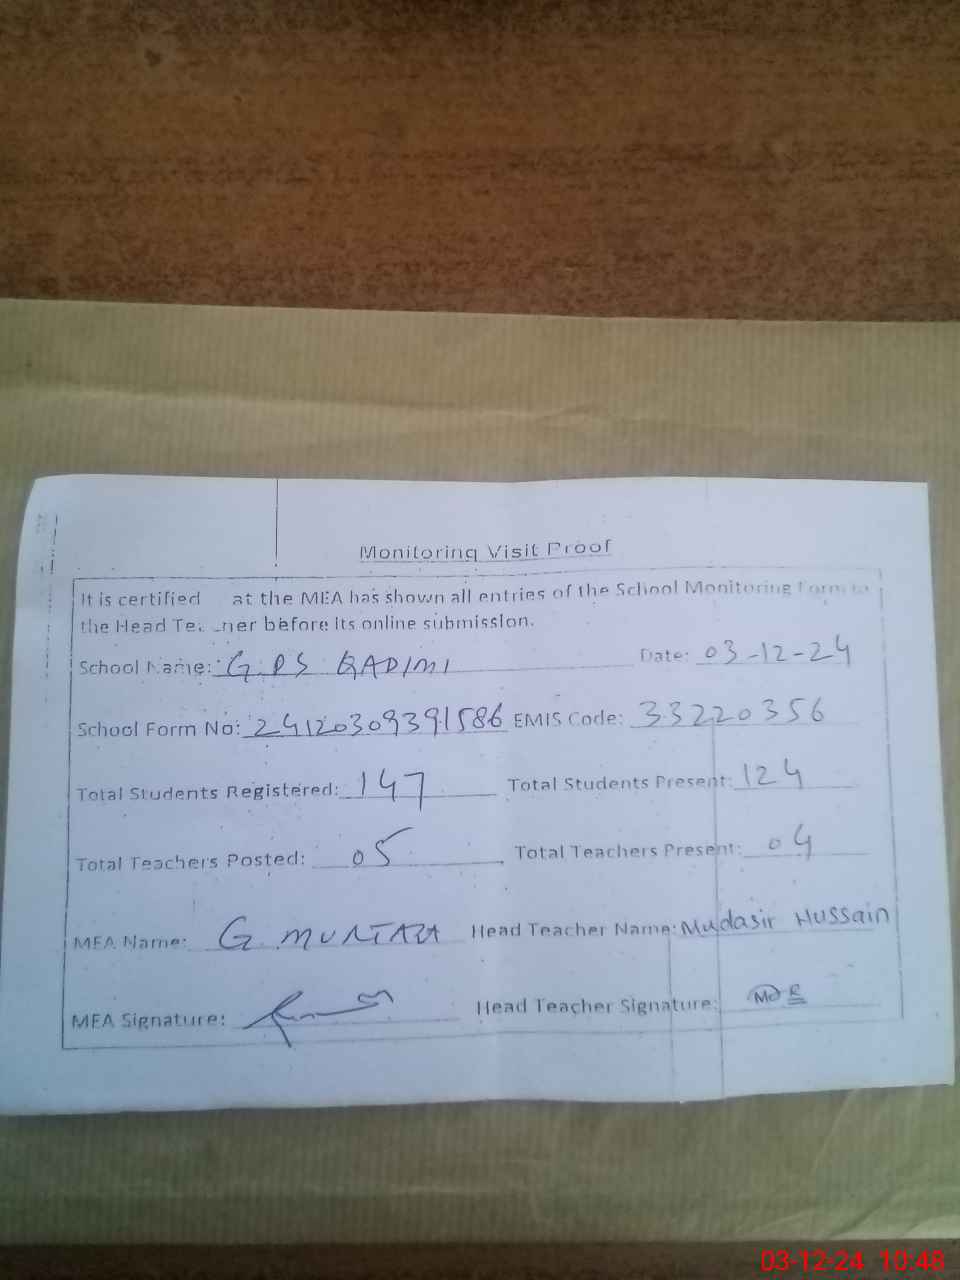 Monitoring Visit Proof
It is certified at the MEA has shown all entries of the School Monitoring Form to
the Head Te. .ner before its online submission.
School Name: G.PS QADIMI Date: 03-12-24
School Form No: 24120309391586 EMIS Code: 33220356
Total Students Registered: 147 Total Students Present: 124
Total Teachers Posted: 05 Total Teachers Present: 04
MEA Name: G. MURTAZA Head Teacher Name: Mudasir Hussain
MEA Signature: Head Teacher Signature:
03-12-24 10:48